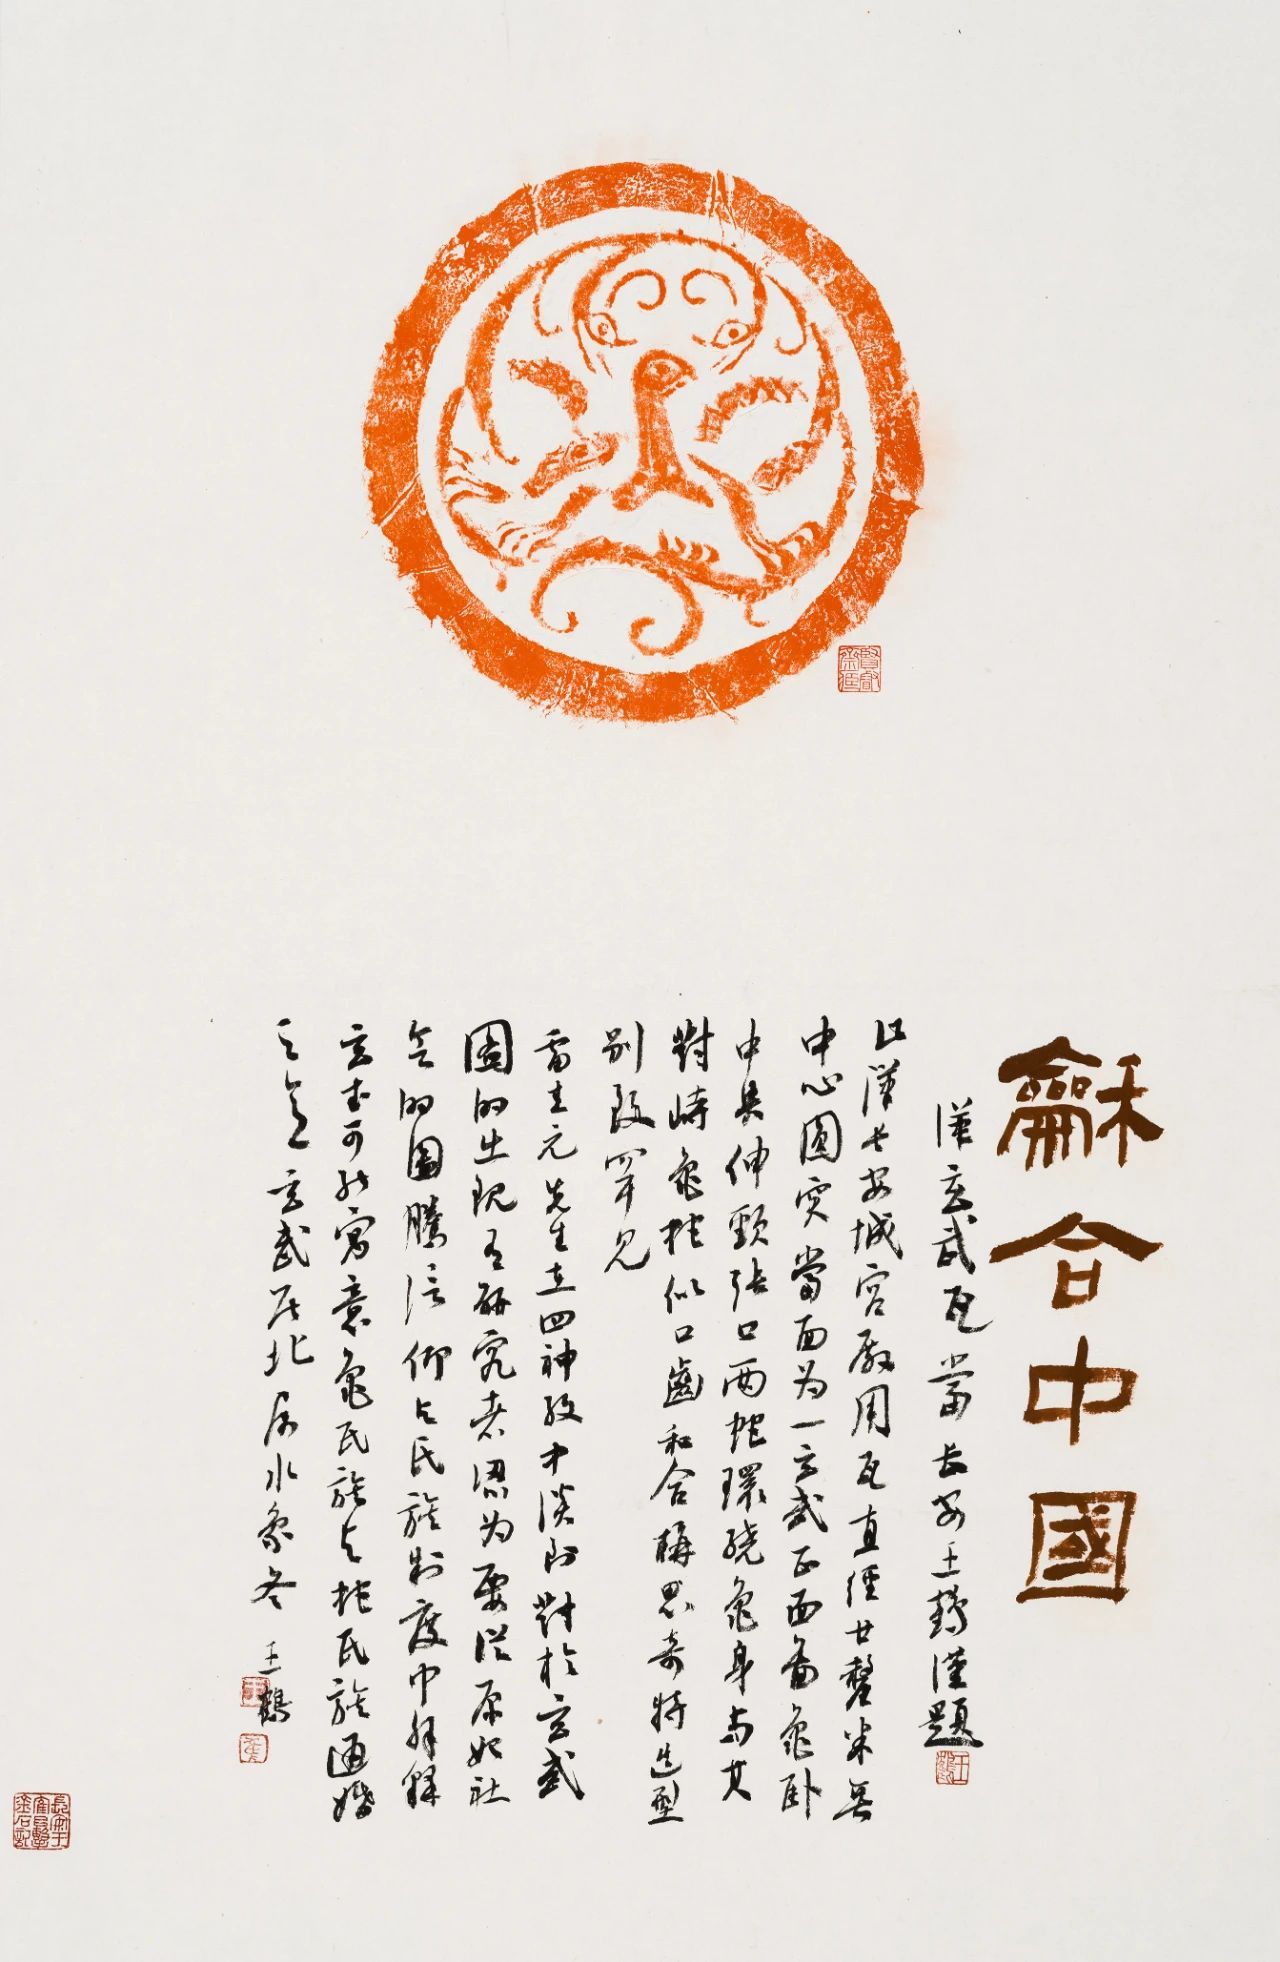 龢合中國
漢玄武瓦當 長安王鶴謹題
此漢長安城宮殿用瓦直徑廿釐米無
中心圓突當面为一玄武正面圖龜卧
中央伸頸張口两蛇環繞龜身與其
對峙龜蛇似口齒和合構思奇特造型
别致罕见
雷圭元先生在四神纹中谈到對於玄武
圖的出现有研究者認为要從原始社
会的圖騰信仰與氏族制度中解釋
玄武可能寓意龜氏族與蛇氏族通婚
之意 玄武居北属水象冬 王鶴